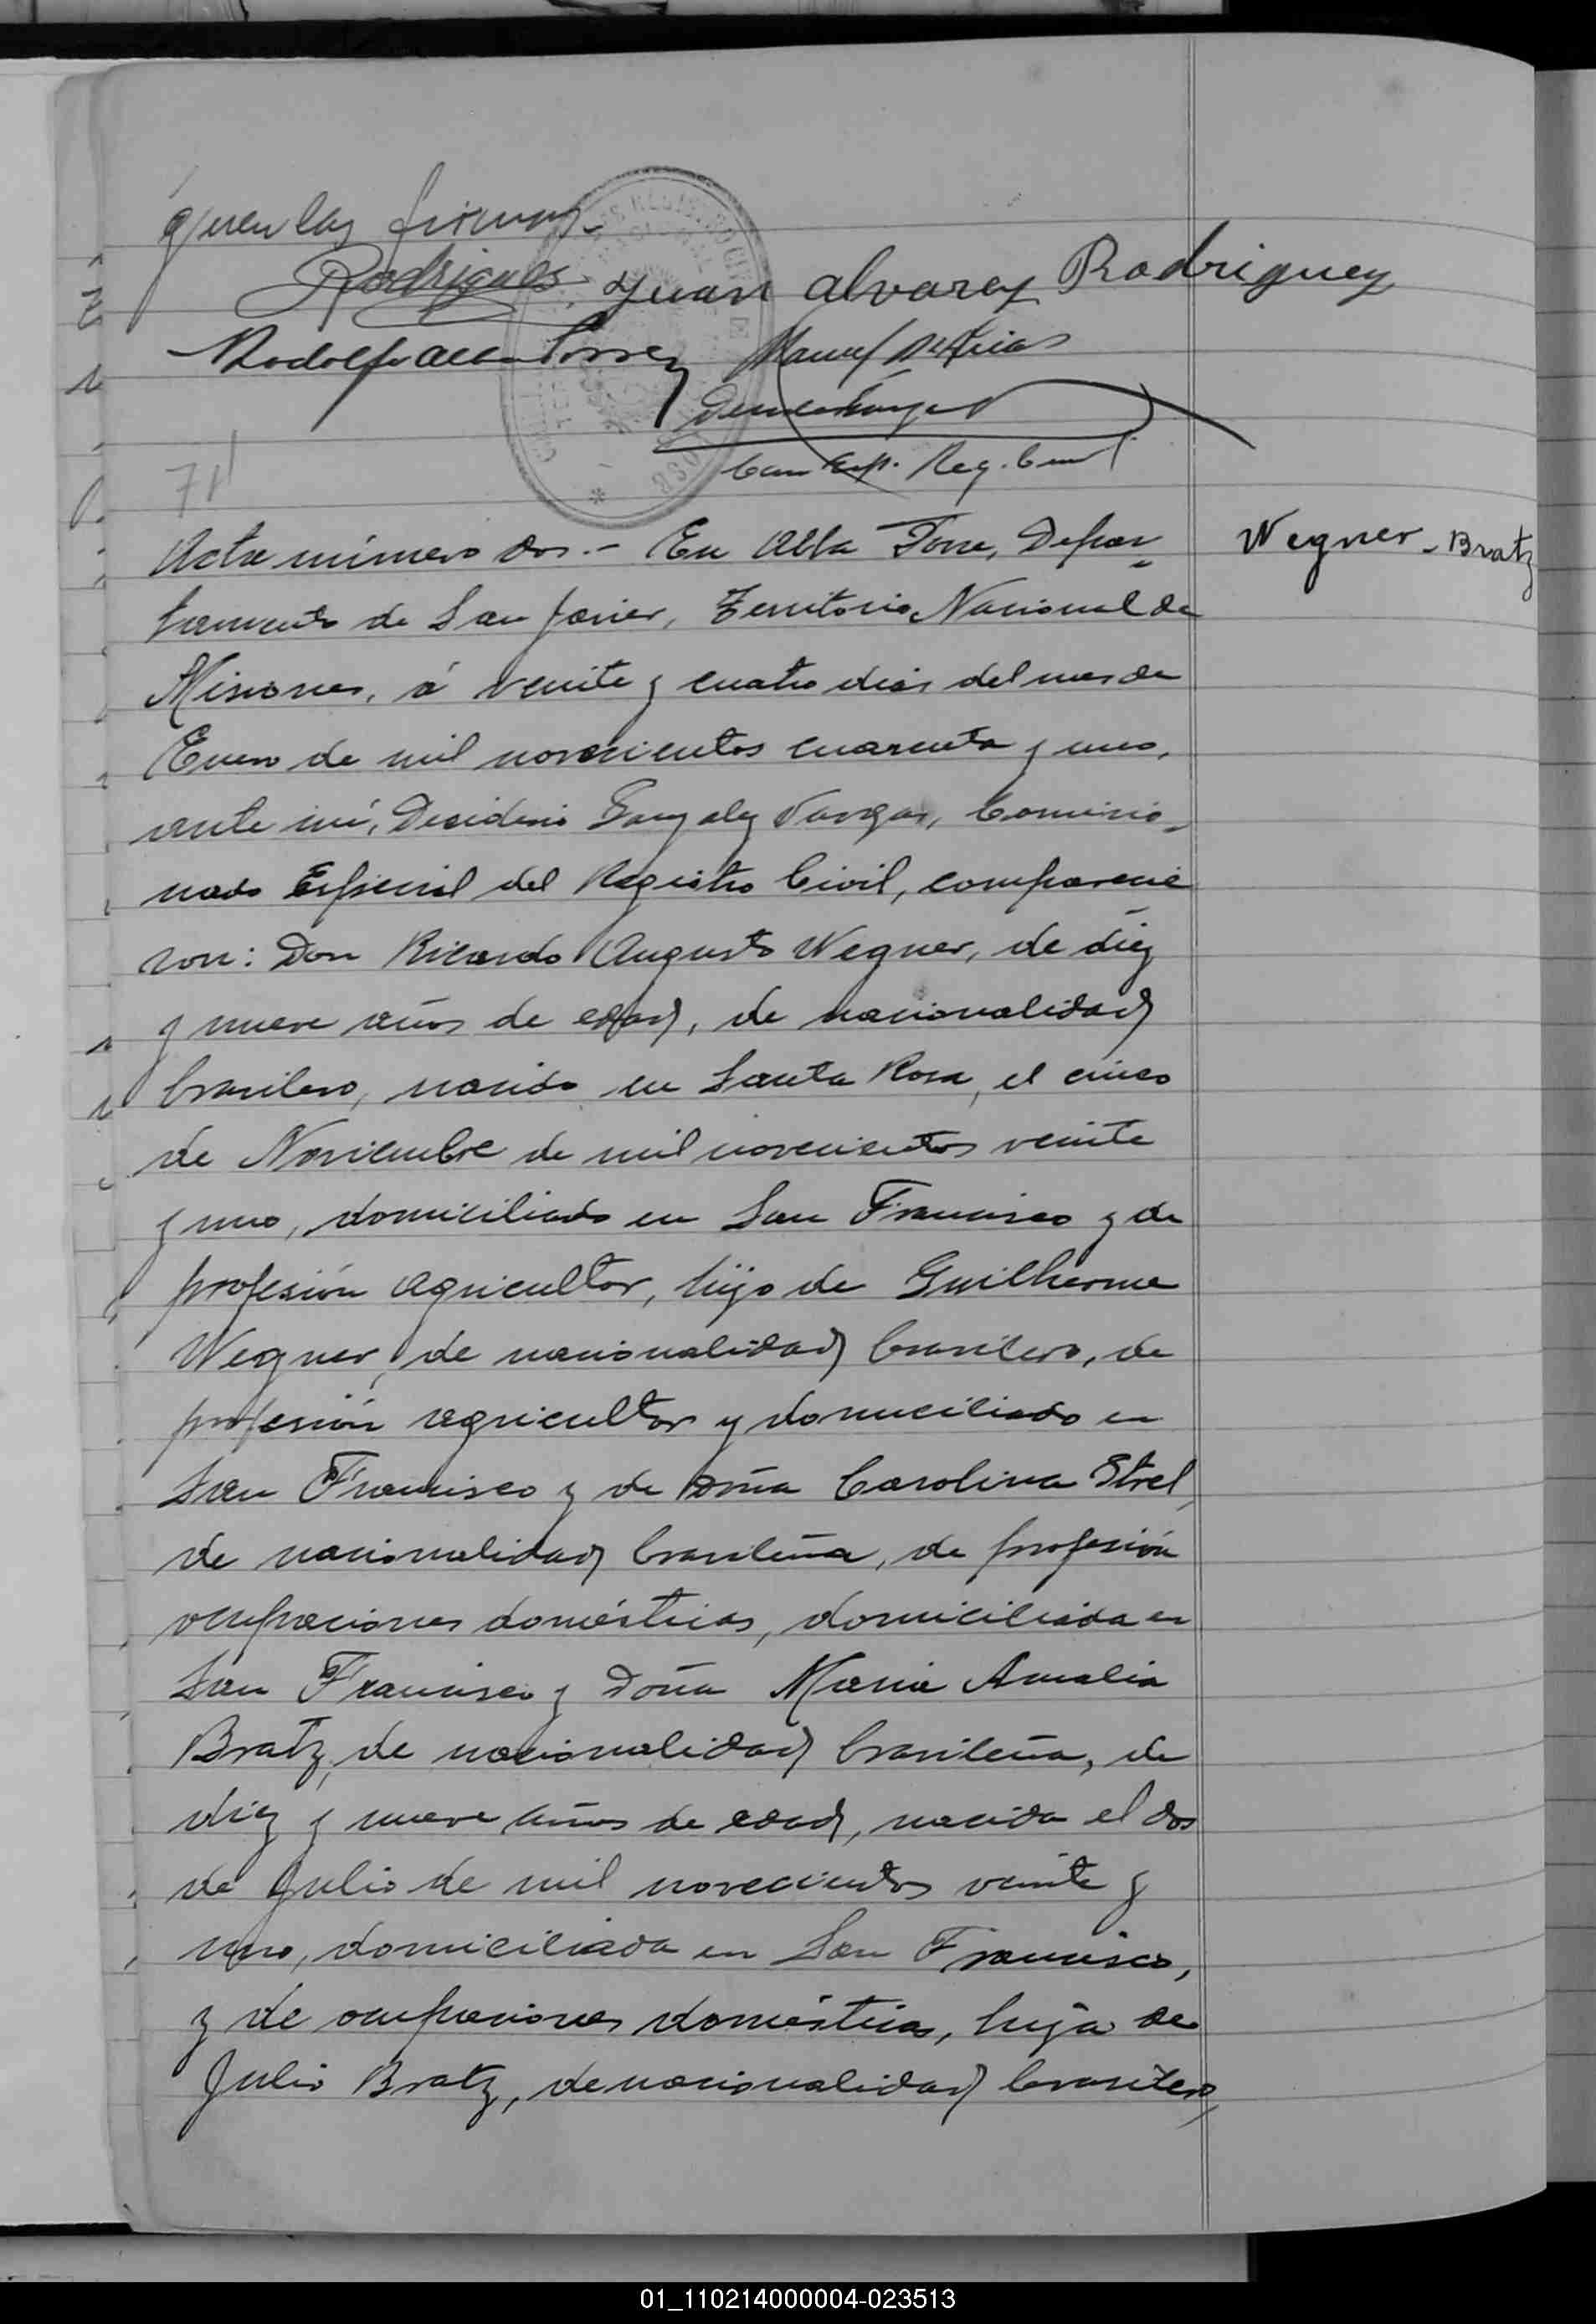 firman.
Rodrigues Juan Alvarez Rodriguez
Rodolfo
Com. Esp. Reg. Civil
71
Acta número dos.- En Alba Posse, Depar
tamento de San Javier, Territorio Nacional de
Misiones, á veinte y cuatro dias del mes de
Enero de mil novecientos cuarenta y uno,
ante mí, Desiderio Gonzalez Vargas, Comisio
nado Especial del Registro Civil, comparecie
ron: Don Ricardo Augusto Wegner, de diez
y nueve años de edad, de nacionalidad
brasilero, nacido en Santa Rosa, el cinco
de Noviembre de mil novecientos veinte
y uno, domiciliado en San Francisco y de
profesión agricultor, hijo de Guilherme
Wegner, de nacionalidad brasilero, de
profesión agricultor y domiciliado en
San Francisco y de Doña Carolina Strel,
de nacionalidad brasileña, de profesión
ocupaciones domésticas, domiciliada en
San Francisco y Doña Maria Amalia
Bratz, de nacionalidad brasileña, de
diez y nueve años de edad, nacida el dos
de Julio de mil novecientos veinte y
uno, domiciliada en San Francisco,
y de ocupaciones domésticas, hija de
Julio Bratz, de nacionalidad brasilero,
Wegner - Bratz
01_110214000004-023513